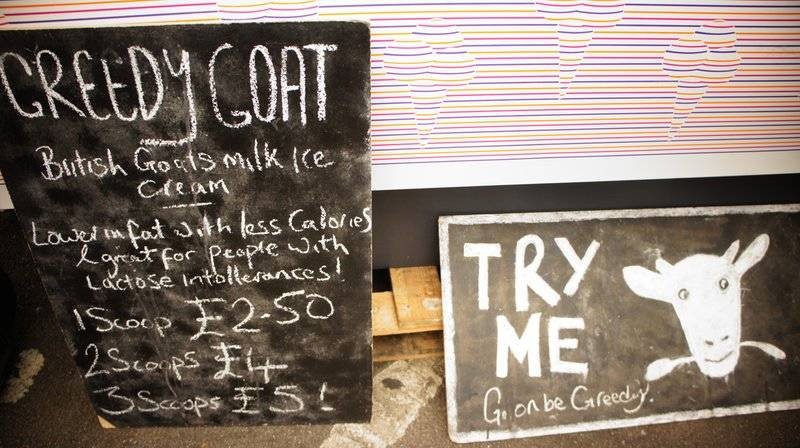 GREEDY GOAT
British Goats Milk Ice
Cream
Lower in fat with less Calories
& great for people with
Lactose intollerances!
1 Scoop £2-50
2 Scoops £4
3 Scoops £5!
TRY
ME
Go on be Greedy.